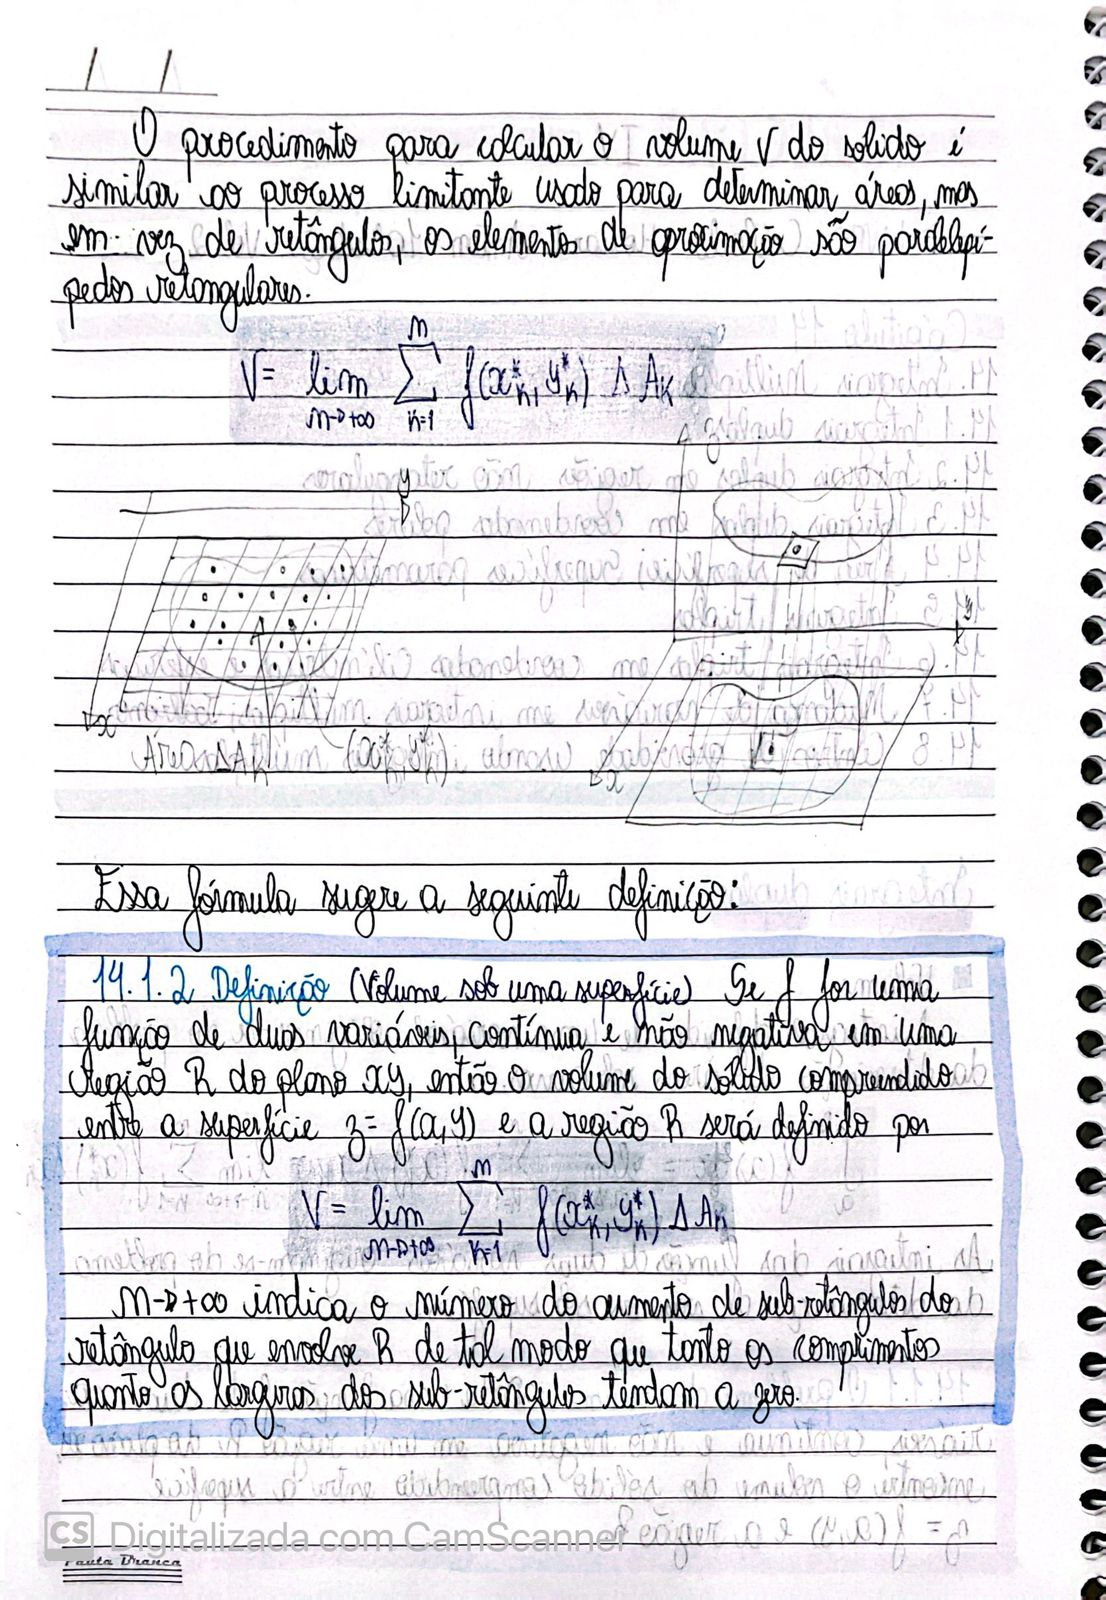 O procedimento para calcular o volume V do sólido é
similar ao processo limitante usado para determinar áreas, mas
em vez de retângulos, os elementos de aproximação são paralelepí-
pedos retangulares.
V = lim n→+∞ Σ k=1 n f(x*k, y*k) Δ Ak
y
y
x
x
Área ΔAk (x*k, y*k)
Essa fórmula sugere a seguinte definição:
14.1.2 Definição (Volume sob uma superfície) Se f for uma
função de duas variáveis, contínua e não negativa em uma
região R do plano xy, então o volume do sólido compreendido
entre a superfície z = f(x,y) e a região R será definido por
V = lim n→+∞ Σ k=1 n f(x*k, y*k) Δ Ak
n→+∞ indica o número do aumento de sub-retângulos do
retângulo que envolve R de tal modo que tanto os comprimentos
quanto as larguras dos sub-retângulos tendam a zero.
CS Digitalizada com CamScanner
Pauta Branca